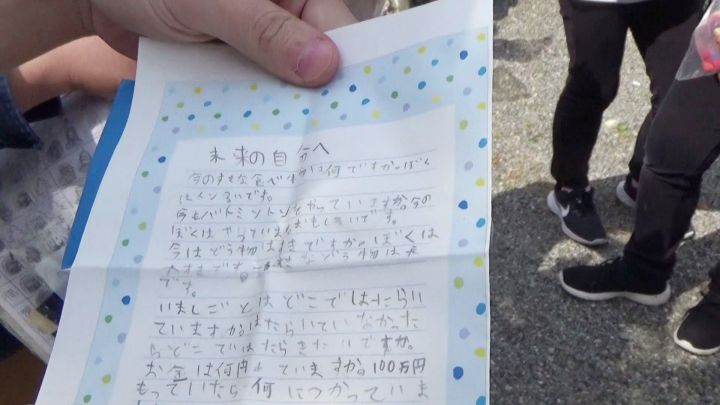 未来の自分へ
今のすきな食べ物は何ですか。ぼく
はです。
今もバトミントンをやっていますか。今の
ぼくはやっていておもしろいです。
今はどう物はすきですか。ぼくは
大すきです。すきなどう物は犬
です。
いましごとはどこではたらい
ていますかはたらいていなかった
らどこではたらきたいですか。
お金は何円もっていますか。100万円
もっていたら何につかっていま